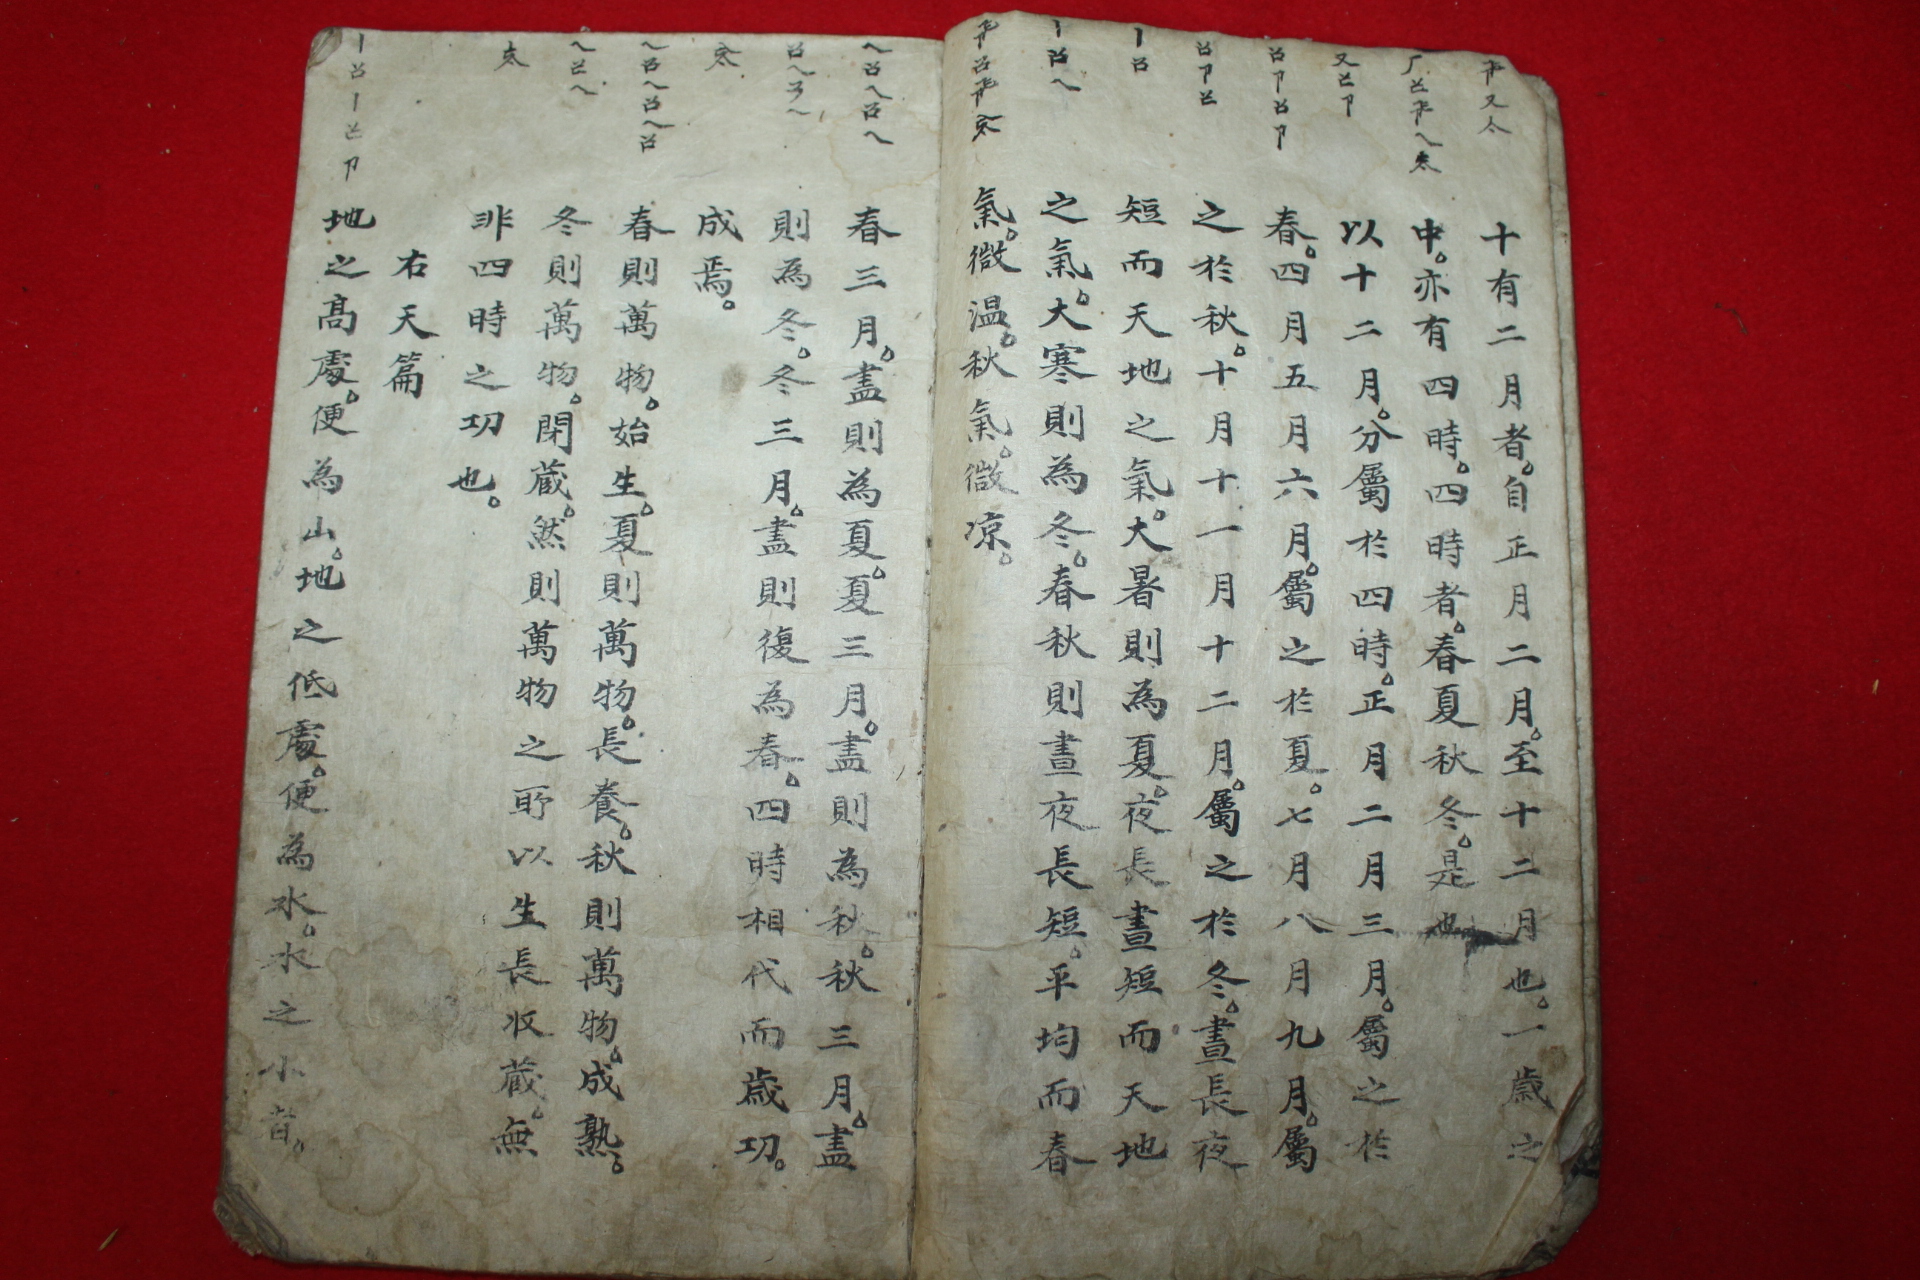 十有二月者自正月二月至十二月也一歲之
中亦有四時四時者春夏秋冬是也
以十二月分屬於四時正月二月三月屬之於
春四月五月六月屬之於夏七月八月九月屬
之於秋十月十一月十二月屬之於冬晝長夜
短而天地之氣大暑則為夏夜長晝短而天地
之氣大寒則為冬春秋則晝夜長短平均而春
氣微温秋氣微凉
春三月盡則為夏夏三月盡則為秋秋三月盡
則為冬冬三月盡則復為春四時相代而歲功
成焉
春則萬物始生夏則萬物長養秋則萬物成熟
冬則萬物閉蔵然則萬物之所以生長收蔵無
非四時之功也
右天篇
地之高處便為山地之低處便為水水之小者